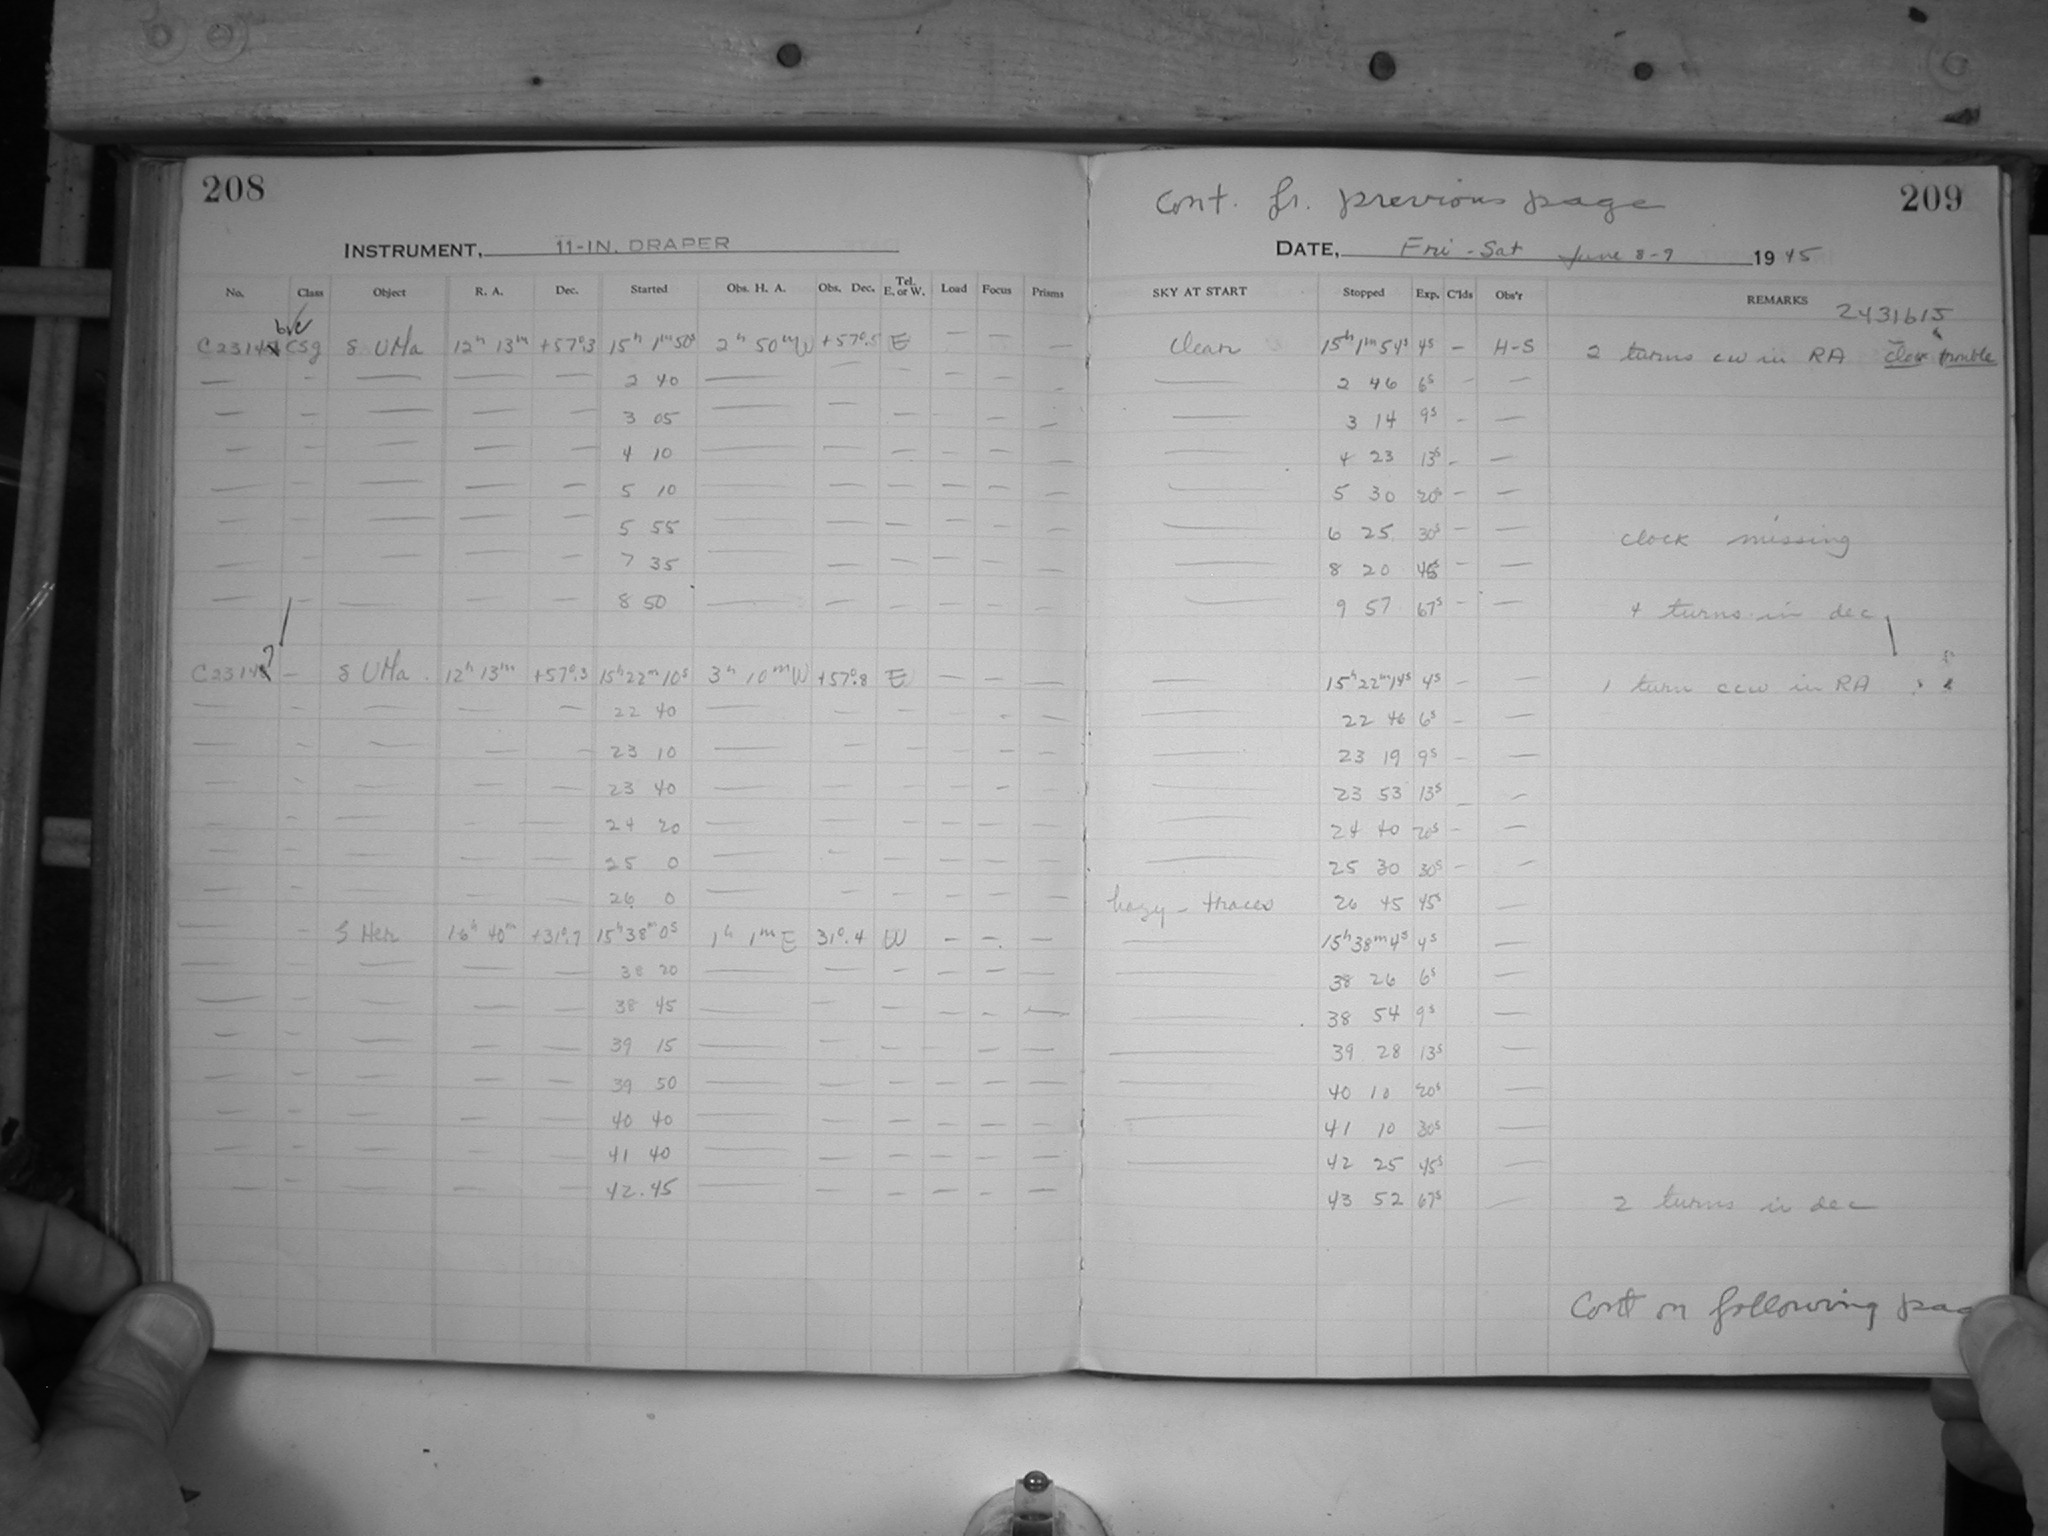 208
INSTRUMENT, 11-IN. DRAPER
No. Class Object R. A. Dec. Started Obs. H. A. Obs. Dec. Tel. E. or W. Load Focus Prisms
csg δ UMa 12h 13m +57°.3 15h 1m 50s 2h 50m W +57°.5 E — — —
— — — — — 2 40 — — — — — —
— — — — — 3 05 — — — — — —
— — — — — 4 10 — — — — — —
— — — — — 5 10 — — — — — —
— — — — — 5 55 — — — — — —
— — — — — 7 35 — — — — — —
— — — — — 8 50 — — — — — —
— δ UMa. 12h 13m +57°.3 15h 22m 10s 3h 10m W +57°.8 E — — —
— — — — — 22 40 — — — — — —
— — — — — 23 10 — — — — — —
— — — — — 23 40 — — — — — —
— — — — — 24 20 — — — — — —
— — — — — 25 0 — — — — — —
— — — — — 26 0 — — — — — —
— — ζ Her 16h 40m +31°.7 15h 38m 0s 1h 1m E 31°.4 W — — —
— — — — — 38 20 — — — — — —
— — — — — 38 45 — — — — — —
— — — — — 39 15 — — — — — —
— — — — — 39 50 — — — — — —
— — — — — 40 40 — — — — — —
— — — — — 41 40 — — — — — —
— — — — — 42.45 — — — — — —
Cont. fr. previous page 209
DATE, Fri - Sat June 8-9 1945
SKY AT START Stopped Exp. C'lds Obs'r REMARKS
2431615
Clear 15h 1m 54s 4s — H-S 2 turns cw in RA trouble
— 2 46 6s — —
— 3 14 9s — —
— 4 23 13s — —
— 5 30 20s — —
— 6 25 30s — — clock missing
— 8 20 45s — —
— 9 57 67s — — 4 turns in dec
— 15h 22m 14s 4s — — 1 turn ccw in RA
— 22 46 6s — —
— 23 19 9s — —
— 23 53 13s — —
— 24 40 20s — —
— 25 30 30s — —
hazy - traces 26 45 45s —
— 15h 38m 4s 4s —
— 38 26 6s —
— 38 54 9s —
— 39 28 13s —
— 40 10 20s —
— 41 10 30s —
— 42 25 45s —
43 52 67s — 2 turns in dec
Cont on following pag